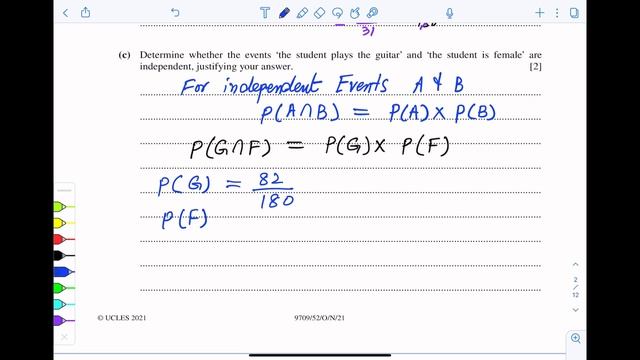 (c) Determine whether the events ‘the student plays the guitar’ and ‘the student is female’ are
independent, justifying your answer. [2]
For independent Events A & B
P(A∩B) = P(A) × P(B)
P(G∩F) = P(G) × P(F)
P(G) = 82/180
P(F)
© UCLES 2021 9709/52/O/N/21
2
/
12